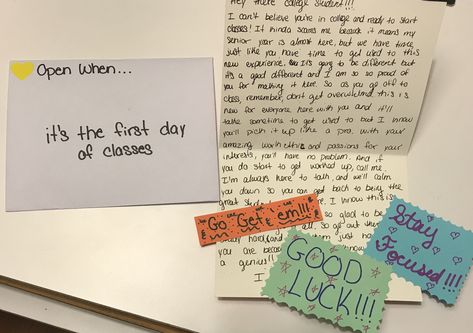 Open When...
it's the first day
of classes
Hey there college student!!!
I can't believe you're in college and ready to start
classes! It kinda scares me because it means my
senior year is almost here, but we have time,
just like you have time to get used to this
new experience. It's going to be different but
it's a good different and I am so so proud of
you for making it here. So as you go off to
class, remember, don't get overwhelmed this is
new for everyone here with you and it'll
take sometime to get used to but I know
you'll pick it up like a pro. With your
amazing work ethic and passions for your
interests, you'll have no problem. And if
you do start to get worked up, call me.
I'm always here to talk, and we'll calm
you down so you can get back to being the
great
I know this is
so glad to be
so get out there
hard and
just
you are
a genius!!
I
Go Get em!!!
GOOD
LUCK!!!
Stay
Focused!!!